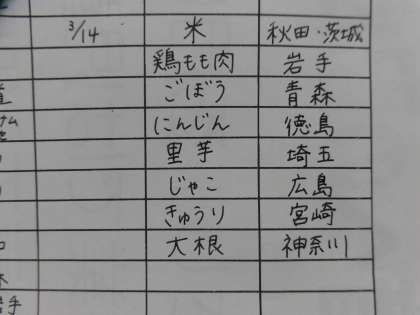 3/14 米 秋田・茨城
鶏もも肉 岩手
ごぼう 青森
にんじん 徳島
里芋 埼玉
じゃこ 広島
きゅうり 宮崎
大根 神奈川
岩手